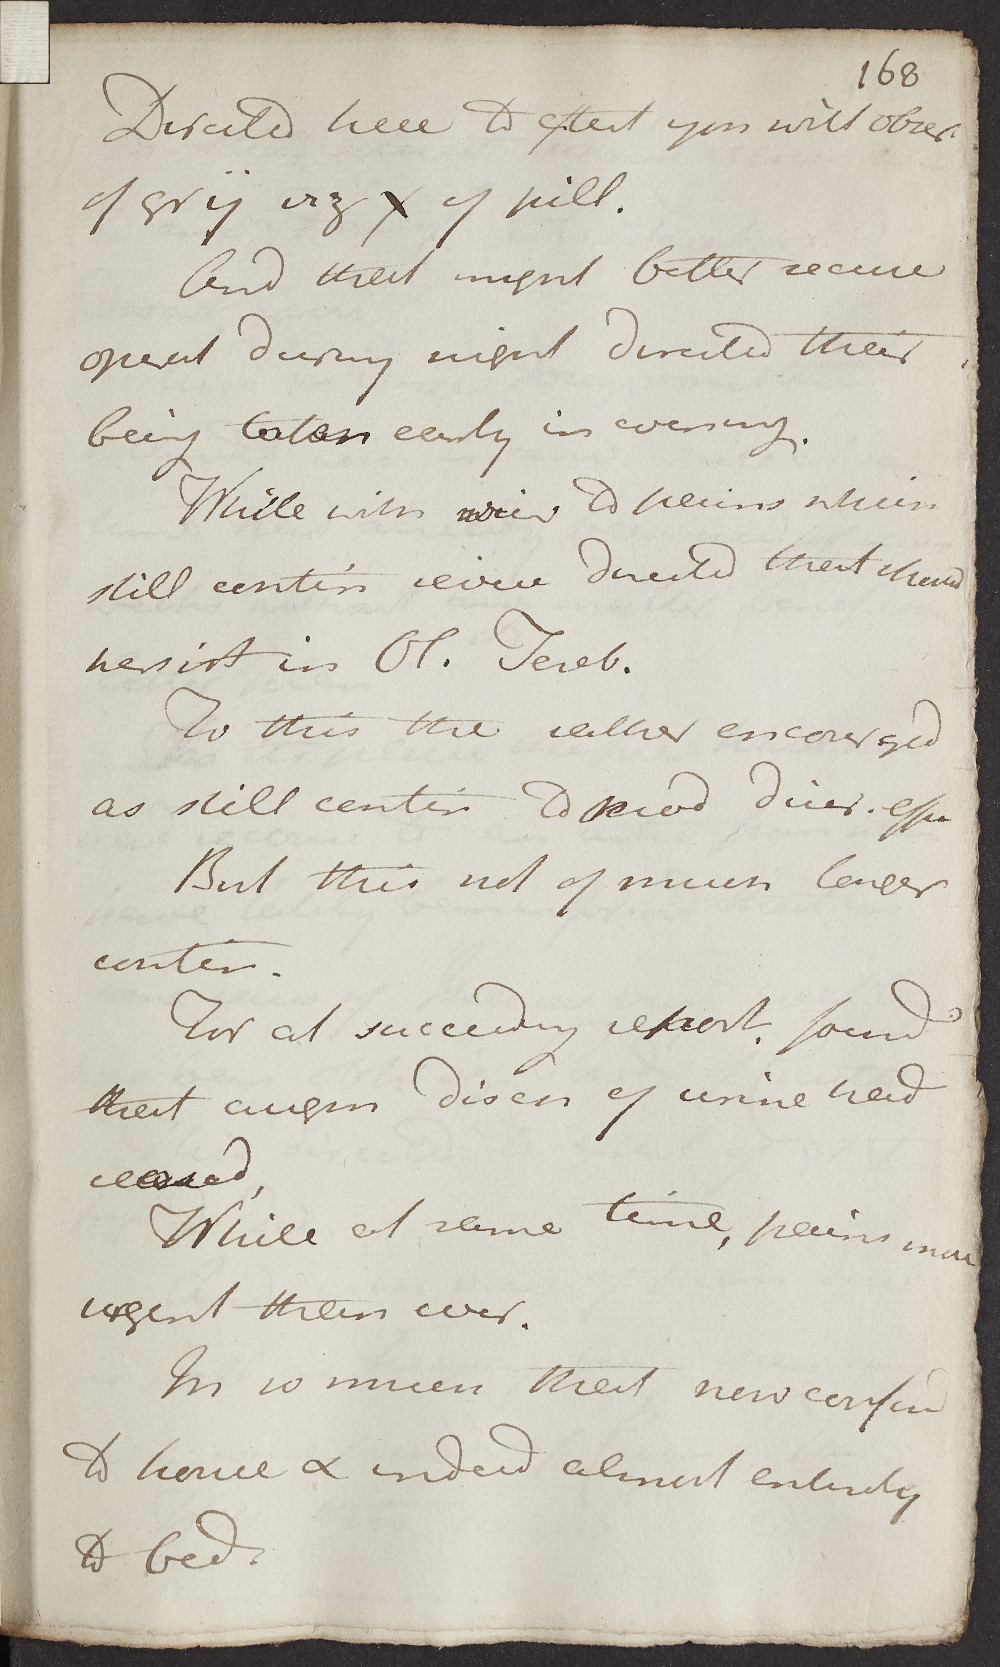 168
Directed here to extent you will obser
of gr ij viz X of pill.
And that might better secure
operat during night directed their
being taken early in evening.
While with view to pains which
still contin severe directed that should
persist in Ol. Tereb.
To this the rather encouraged
as still contin to prod diur. effec
But this not of much longer
contin.
For at succeeding report. found
that augm disch of urine had
ceased,
While at same time, pains more
urgent than ever.
In so much that now confind
to house & indeed almost entirely
to bed.